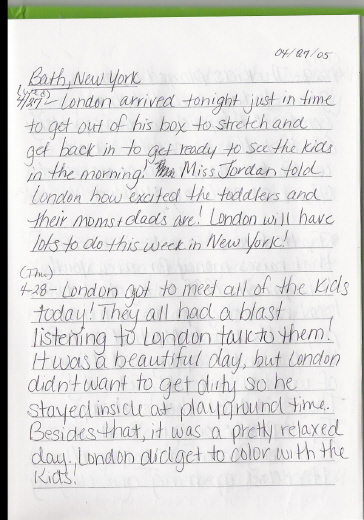 04/27/05
Bath, New York
(Wed)
4/27 - London arrived tonight just in time
to get out of his box to stretch and
get back in to get ready to see the kids
in the morning! Miss Jordan told
London how excited the toddlers and
their moms + dads are! London will have
lots to do this week in New York!
(Thu)
4-28 - London got to meet all of the kids
today! They all had a blast
listening to London talk to them!
It was a beautiful day, but London
didn't want to get dirty so he
stayed inside at playground time.
Besides that, it was a pretty relaxed
day. London did get to color with the
kids!